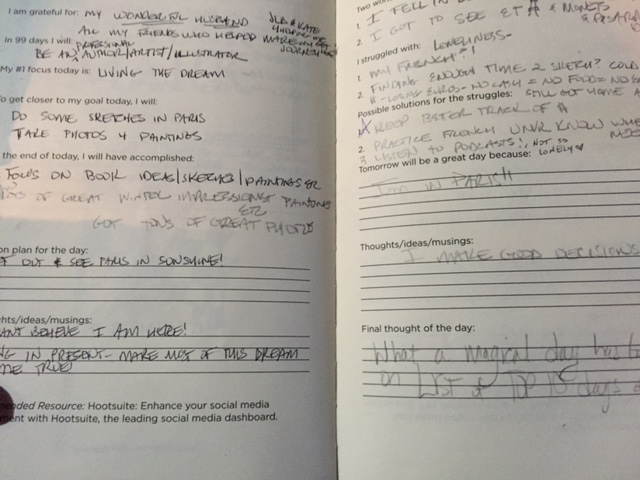 I am grateful for: MY WONDERFUL HUSBAND
ALL MY FRIENDS WHO HELPED MAKE
In 99 days I will: PROFESSIONAL
BE AN AUTHOR/ARTIST/ILLUSTRATOR
My #1 focus today is: LIVING THE DREAM
To get closer to my goal today, I will:
DO SOME SKETCHES IN PARIS
TAKE PHOTOS 4 PAINTINGS
the end of today, I will have accomplished:
FOCUS ON BOOK IDEAS/SKETCHES/PAINTINGS ETC
OF GREAT WINTER IMPRESSIONIST PAINTINGS
ETC
GOT TONS OF GREAT PHOTOS
on plan for the day:
OUT & SEE PARIS IN SUNSHINE!
hts/ideas/musings:
ANT BELIEVE I AM HERE!
NG IN PRESENT - MAKE MOST OF THIS DREAM
ME TRUE!
ended Resource: Hootsuite: Enhance your social media
ment with Hootsuite, the leading social media dashboard.
Two wo
1. I FELL IN
2. I GOT TO SEE & MONETS
I struggled with: LONELINESS-
1. MY FRENCH!!
2. FINDING ENOUGH TIME 2 SKETCH? COLD
- LOSING EUROS - NO CASH = NO FOOD = NO
Possible solutions for the struggles: STILL GOT HOME
KEEP BETTER TRACK OF
2. PRACTICE FRENCH
3. LISTEN TO PODCASTS! NOT SO LONELY
Tomorrow will be a great day because:
I'm IN PARIS!!
Thoughts/ideas/musings:
I MAKE GOOD DECISIONS
Final thought of the day:
What a magical day has
on LIST of TOP 10 days